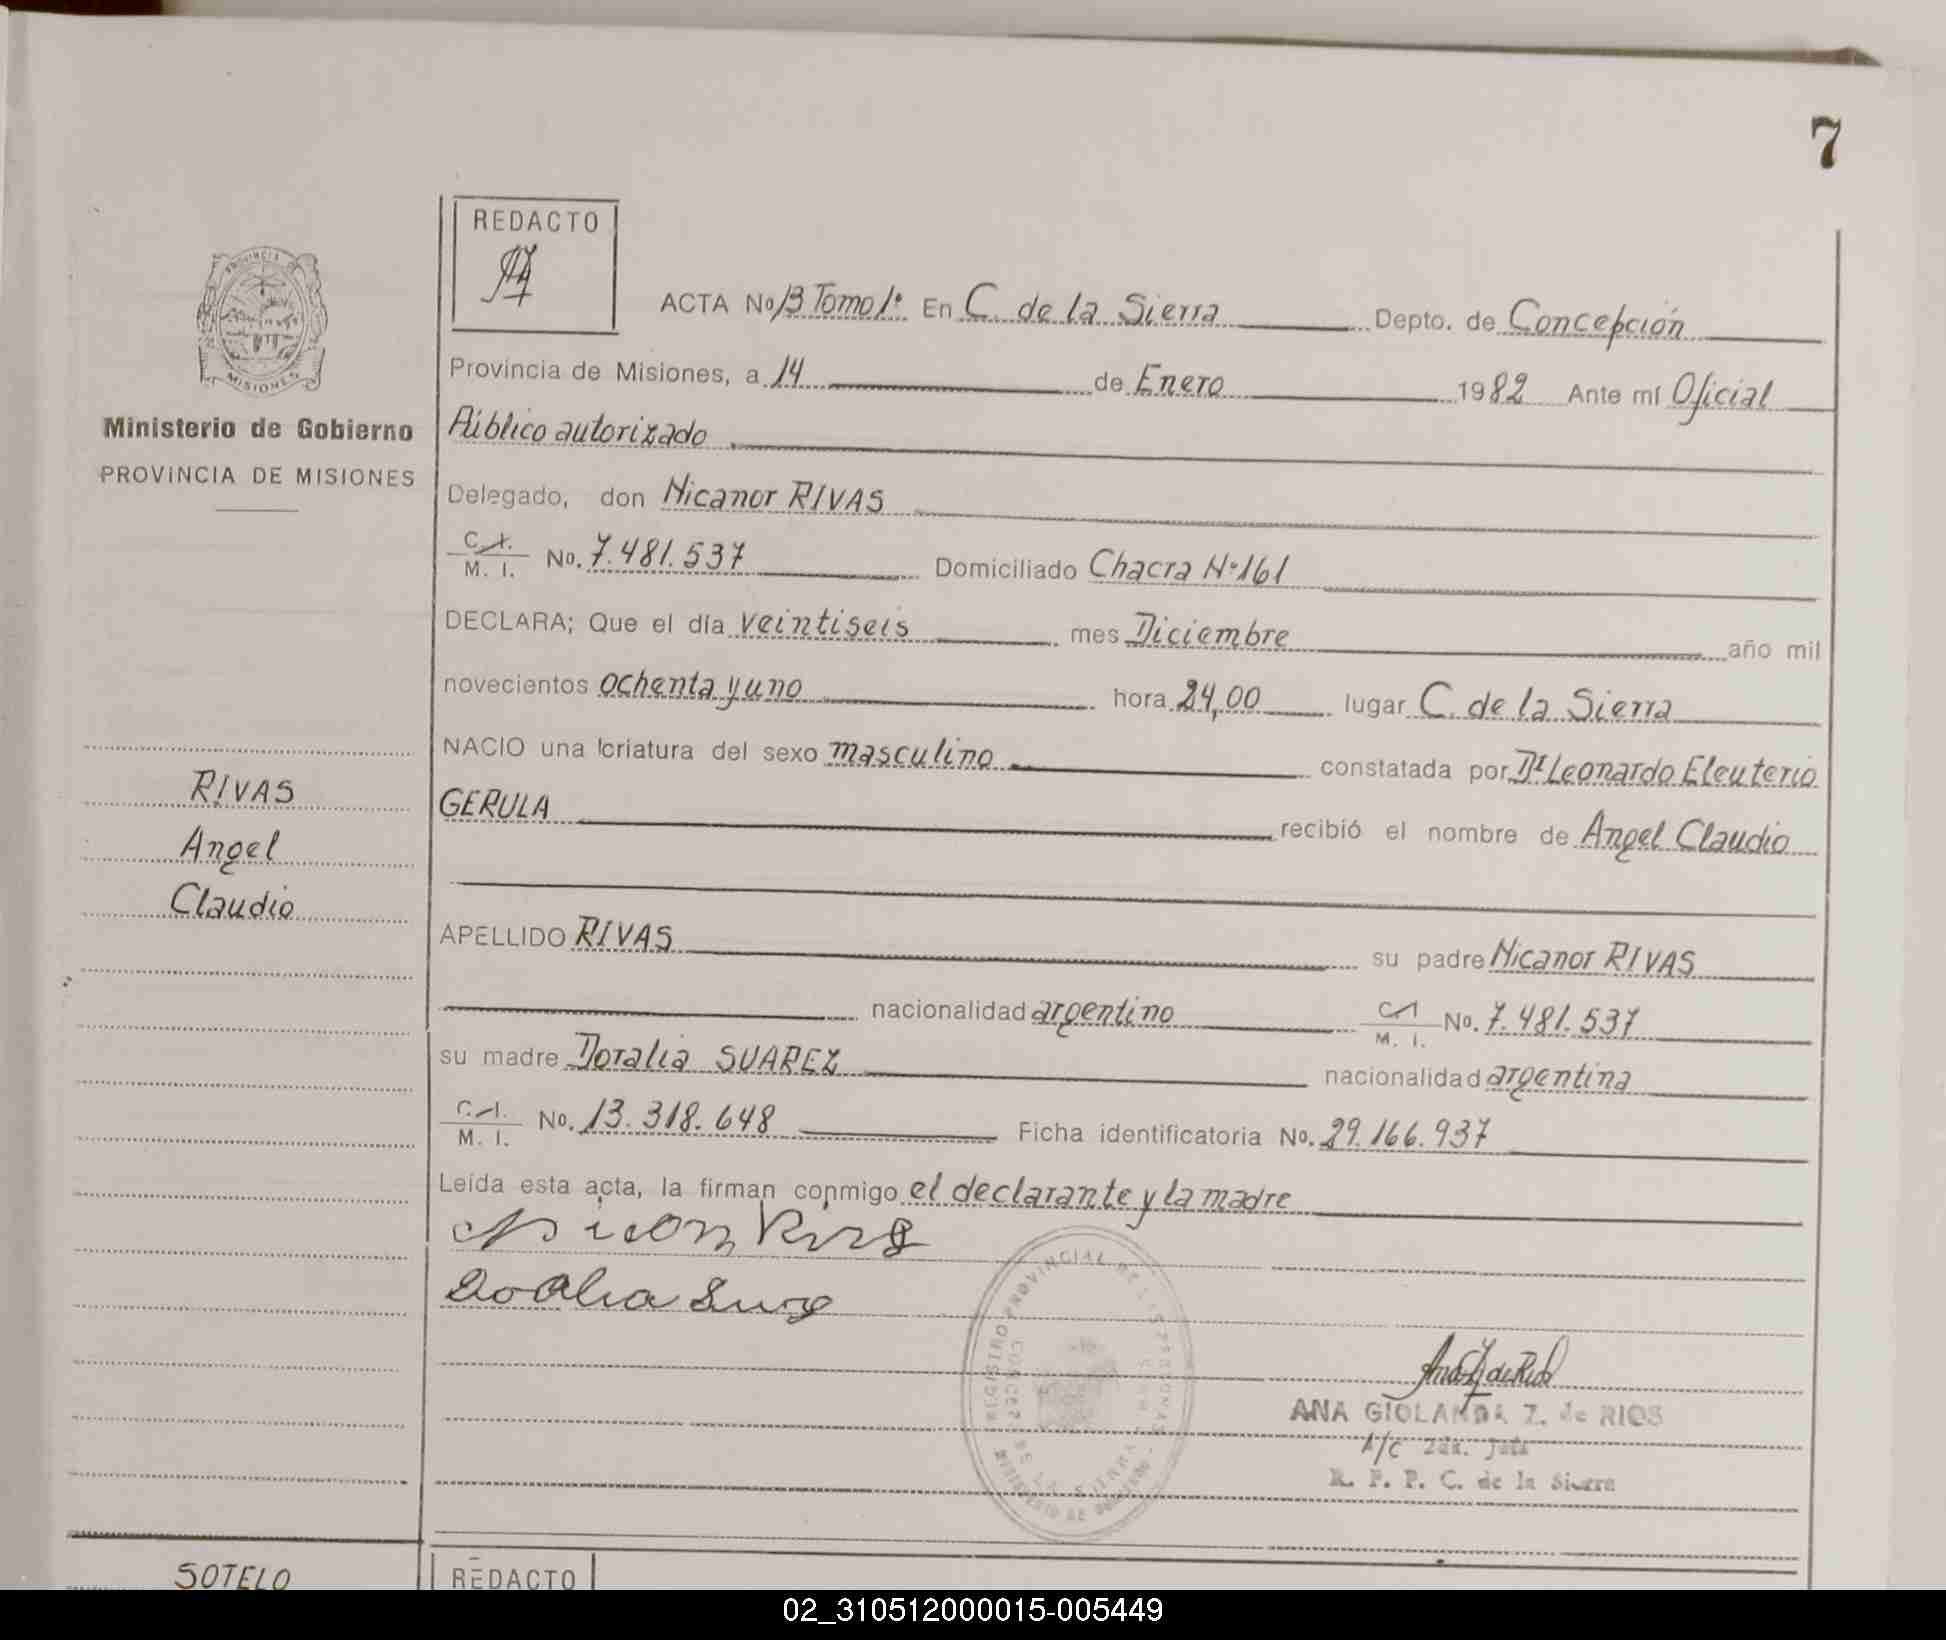 7
REDACTO
PROVINCIA DE
MISIONES
Ministerio de Gobierno
PROVINCIA DE MISIONES
ACTA No 13 Tomo 1º En C. de la Sierra Depto. de Concepción
Provincia de Misiones, a 14 de Enero 1982 Ante mí Oficial
Público autorizado
Delegado, don Nicanor RIVAS
C. I. M. I. No. 7.481.537 Domiciliado Chacra Nº 161
DECLARA; Que el día veintiseis mes Diciembre año mil
novecientos ochenta y uno hora 24,00 lugar C. de la Sierra
NACIO una criatura del sexo masculino constatada por Dr. Leonardo Eleuterio
GERULA recibió el nombre de Angel Claudio
RIVAS
Angel
Claudio
APELLIDO RIVAS su padre Nicanor RIVAS
nacionalidad argentino C. I. M. I. No. 7.481.537
su madre Doralia SUAREZ nacionalidad argentina
C. I. M. I. No. 13.318.648 Ficha identificatoria No. 29.166.937
Leída esta acta, la firman conmigo el declarante y la madre
REGISTRO PROVINCIAL DE LAS PERSONAS
ANA GIOLANDA Z. de RIOS
A/C
R. P. P. C. de la Sierra
SOTELO
REDACTO
02_310512000015-005449